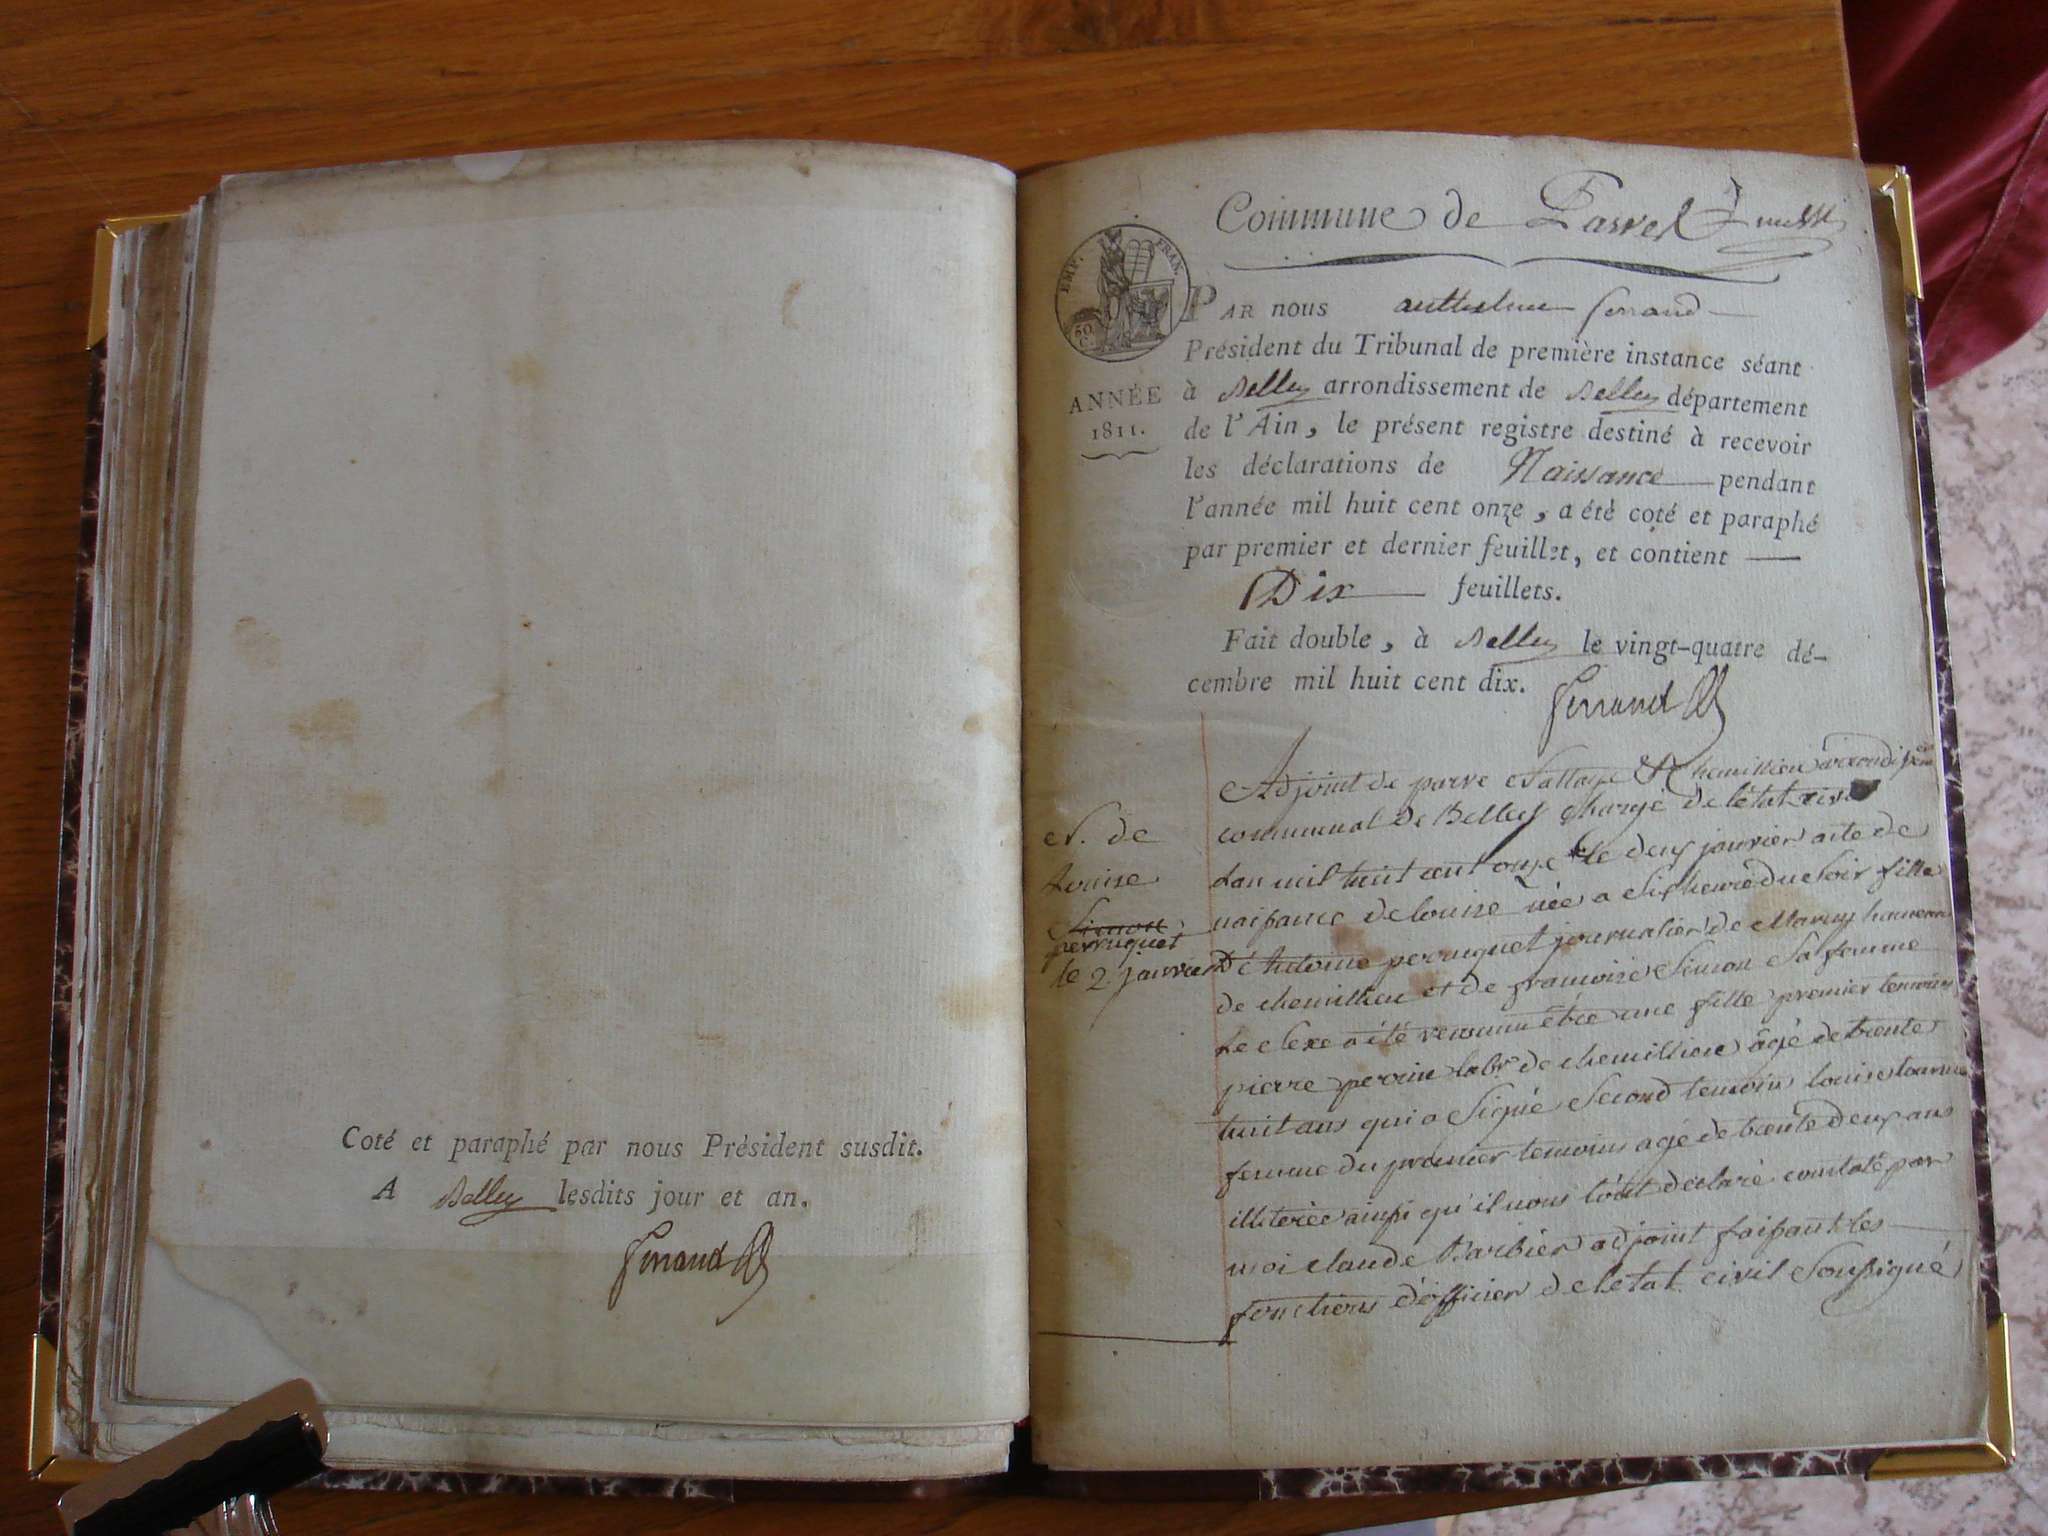 Coté et paraphé par nous Président susdit.
A Belley lesdits jour et an.
Ferrand
Commune de Parves
EMP. FRAN.
50 C.
ANNÉE
1811.
PAR nous anthelme ferrand
Président du Tribunal de première instance séant
à Belley arrondissement de Belley département
de l'Ain, le présent registre destiné à recevoir
les déclarations de Naissance pendant
l'année mil huit cent onze, a été coté et paraphé
par premier et dernier feuillet, et contient
Dix feuillets.
Fait double, à Belley le vingt-quatre dé-
cembre mil huit cent dix.
Ferrand
N. de
Louise
Simon
perruquet
le 2. janvier
Adjoint de parve et chemillieu
communal de Belley chargé de létat civil
Lan mil huit cent onze le deux janvier acte de
naissance de louise née a six heure du soir fille
D'Antoine perruquet journalier de
de chemillieu et de francoise Simon Sa femme
Le Sexe a été reconnu être une fille premier temoins
pierre perrin labr de chemillieu âgé de trente
huit ans qui a Signé Second temoin louise
femme du premier temoins agé de trente deux ans
illiterée ainsi qu'il nous l'ont déclaré constaté par
moi claude Barbier adjoint faisant les
fonctions d'officier de letat civil Soussigné